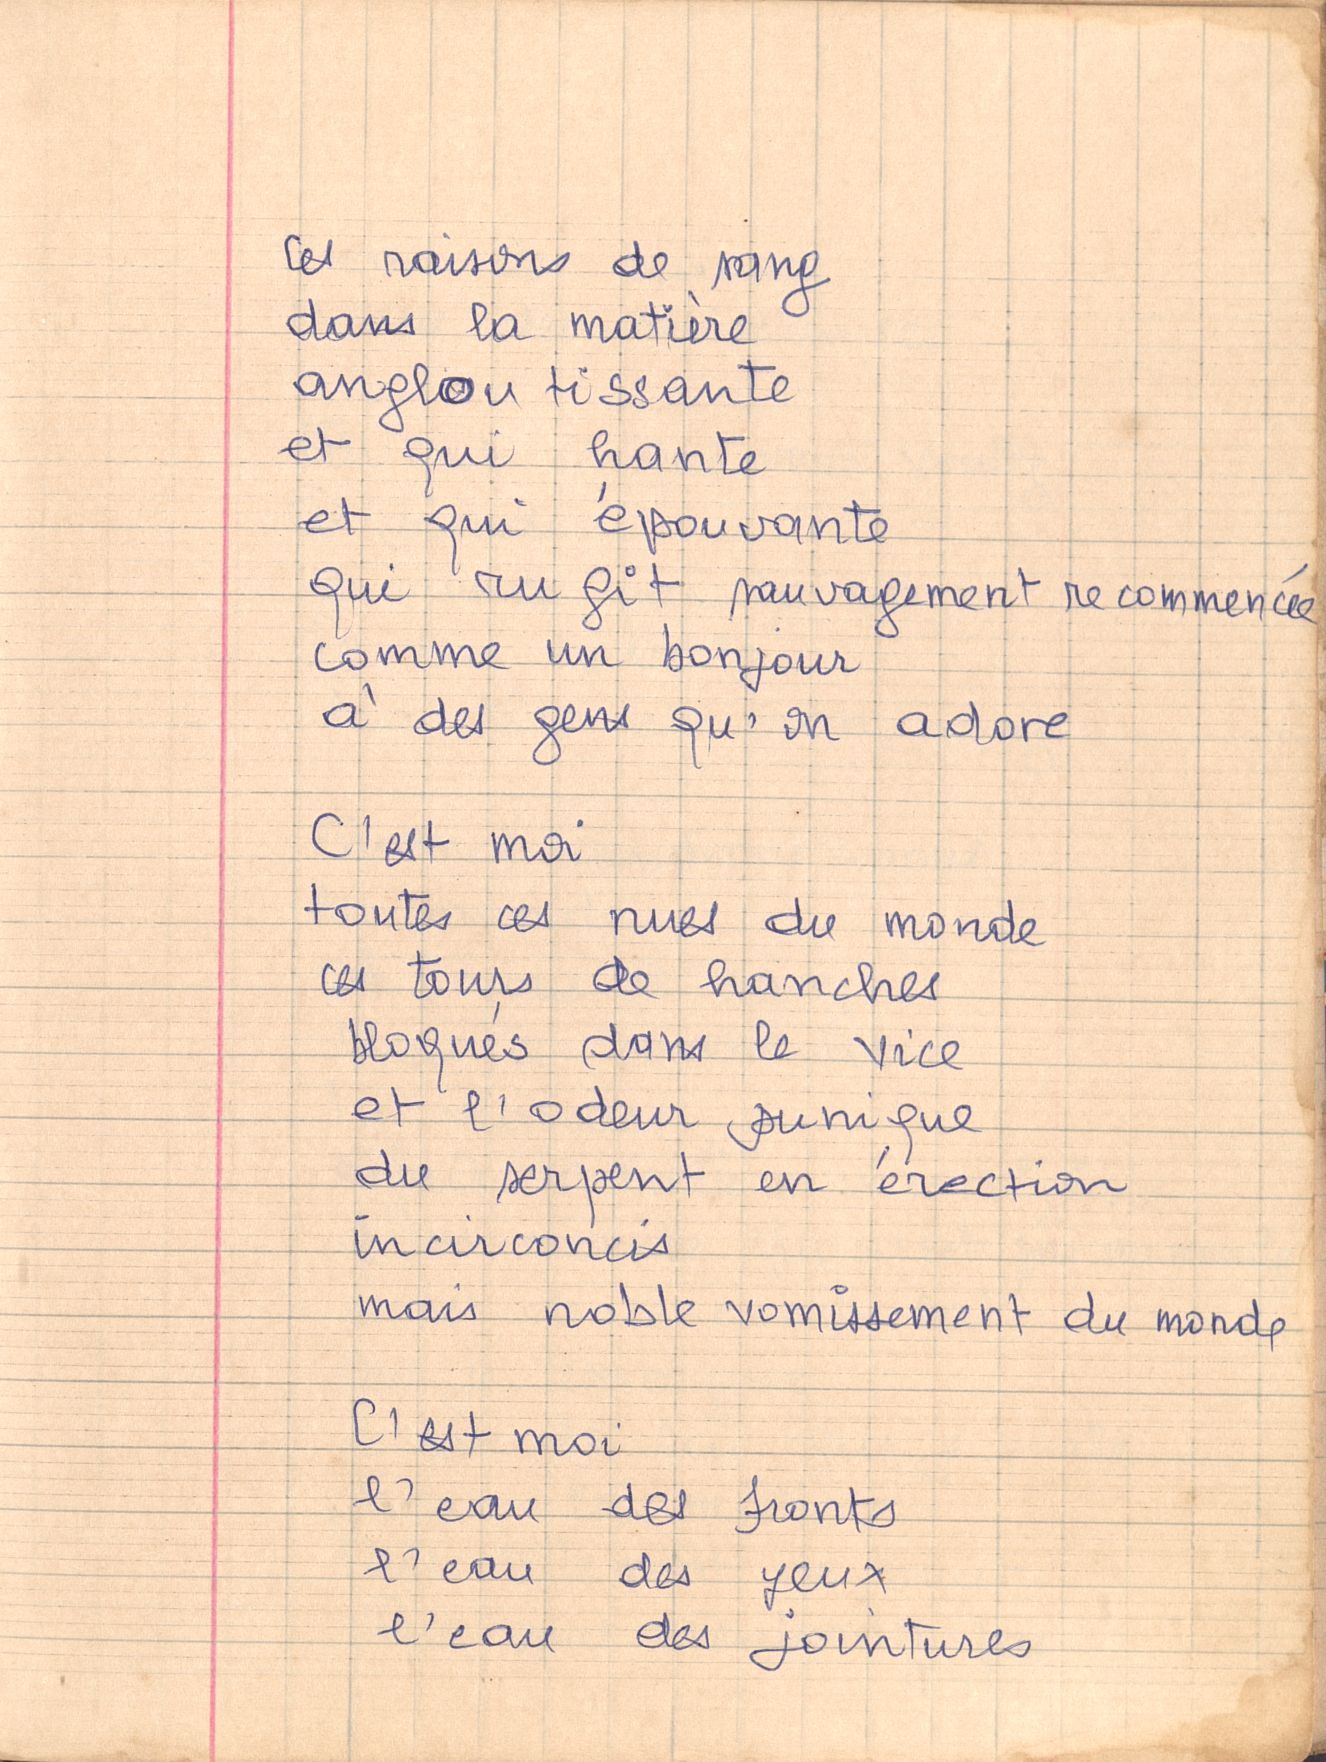 Ces raisons de sang
dans la matière
angloutissante
et qui hante
et qui épouvante
qui rugit sauvagement recommencée
comme un bonjour
à des gens qu'on adore
C'est moi
toutes ces nues du monde
ces tours de hanches
bloqués dans le vice
et l'odeur punique
du serpent en érection
incirconcis
mais noble vomissement du monde
C'est moi
l'eau des fronts
l'eau des yeux
l'eau des jointures